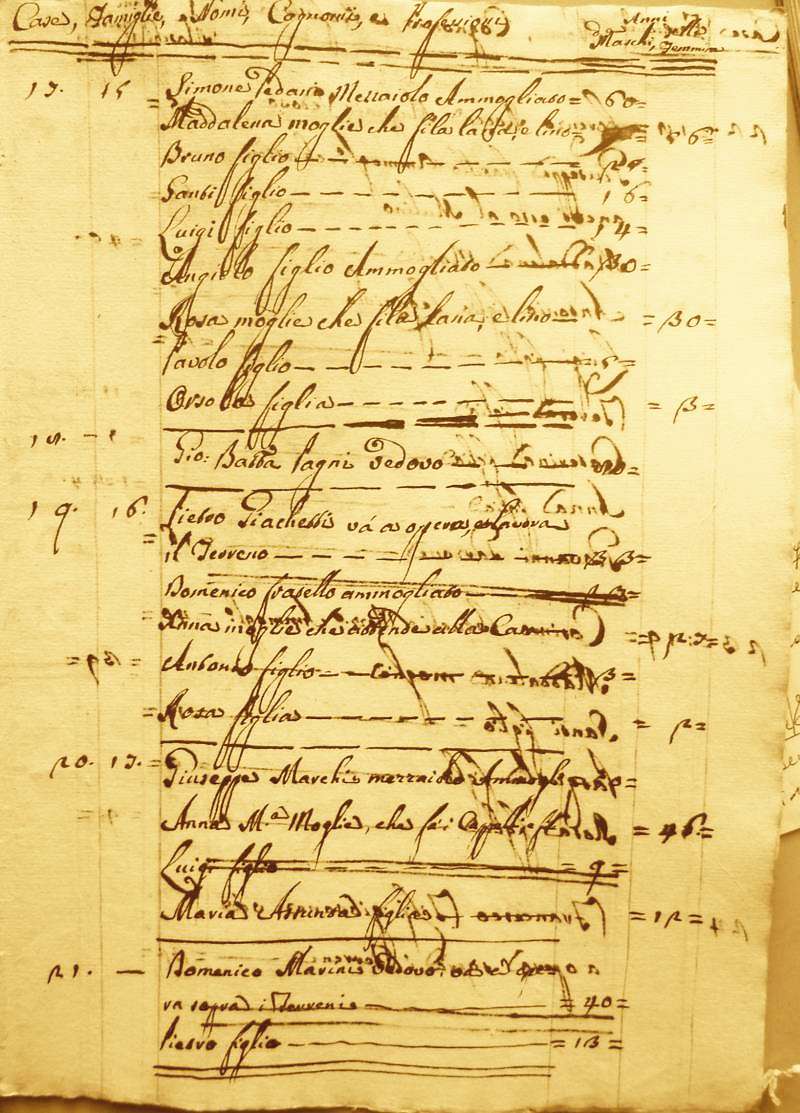 Case, Famiglie, e Nomi, Cognomi, e Professioni
Anni delli
Maschi, Femmine
17. 15 Simone Pedani Mezzaiolo Ammogliato = 60 =
Maddalena moglie che fila lana, e lino = 56 =
Bruno figlio
Santi figlio = 16 =
Luigi figlio = 14 =
Angiolo figlio Ammogliato = 30 =
Rosa moglie che fila lana, e lino = 30 =
Pavolo figlio
Orsola figlia = 3 =
18. - 1 Gio: Batta Pagni Vedovo
19. 16. Pietro Giachetti và a opera, e lavora
il Terreno = 33 =
Domenico fratello ammogliato
Anna moglie che attende alla Casa
Antonio figlio = 3 =
Rosa figlia = 2 =
20. 17. Giuseppe Marchi mezzaiolo Ammogl:
Anna Ma Moglie, che fà i Cappelli = 46 =
Luigi figlio = 9 =
Maria Assunta figlia = 12 =
21. - Domenico Marini Vedovo a opera
ra sopra i Terreni = 40 =
Pietro figlio = 13 =